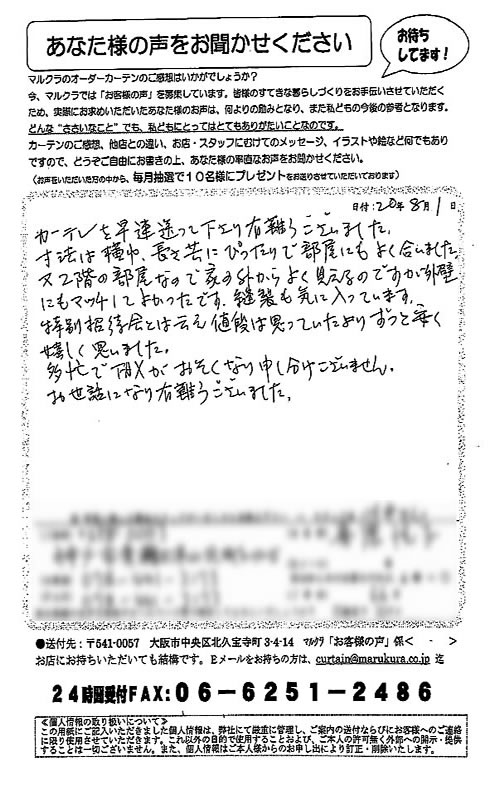 あなた様の声をお聞かせください
お待ち
してます!
マルクラのオーダーカーテンのご感想はいかがでしょうか?
今、マルクラでは「お客様の声」を募集しています。皆様のすてきな暮らしづくりをお手伝いさせていただく
ため、実際にお求めいただいたあなた様のお声は、何よりの励みとなり、また私どもの今後の参考となります。
どんな“ささいなこと”でも、私どもにとってはとてもありがたいことなのです。
カーテンのご感想、他店との違い、お店・スタッフにむけてのメッセージ、イラストや絵など何でもあり
ですので、どうぞご自由にお書きの上、あなた様の率直なお声をお聞かせください。
(お声をいただいた方の中から、毎月抽選で10名様にプレゼントをお送りさせていただいております)
日付:20年8月1日
カーテンを早速送って下さり有難うございました。
寸法は横巾、長さ共にぴったりで部屋にもよく合いました。
又2階の部屋なので家の外からよく見えるのですが外壁
にもマッチしてよかったです。縫製も気に入っています。
特別招待会とは云え値段は思っていたよりずっと安く
嬉しく思いました。
多忙でFAXがおそくなり申し分けございません。
お世話になり有難うございました。
●送付先:〒541-0057 大阪市中央区北久宝寺町3-4-14 マルクラ「お客様の声」係< - >
お店にお持ちいただいても結構です。Eメールをお持ちの方は、curtain@marukura.co.jp 迄
24時間受付FAX:06-6251-2486
<個人情報の取り扱いについて>
この用紙にご記入いただきました個人情報は、弊社にて厳重に管理し、ご案内の送付ならびにお客様へのご連絡
に限り使用させていただきます。これ以外の目的で使用することおよび、ご本人の許可無く外部への開示・提供
することは一切ございません。また、個人情報はご本人様からのお申し出により訂正・削除いたします。